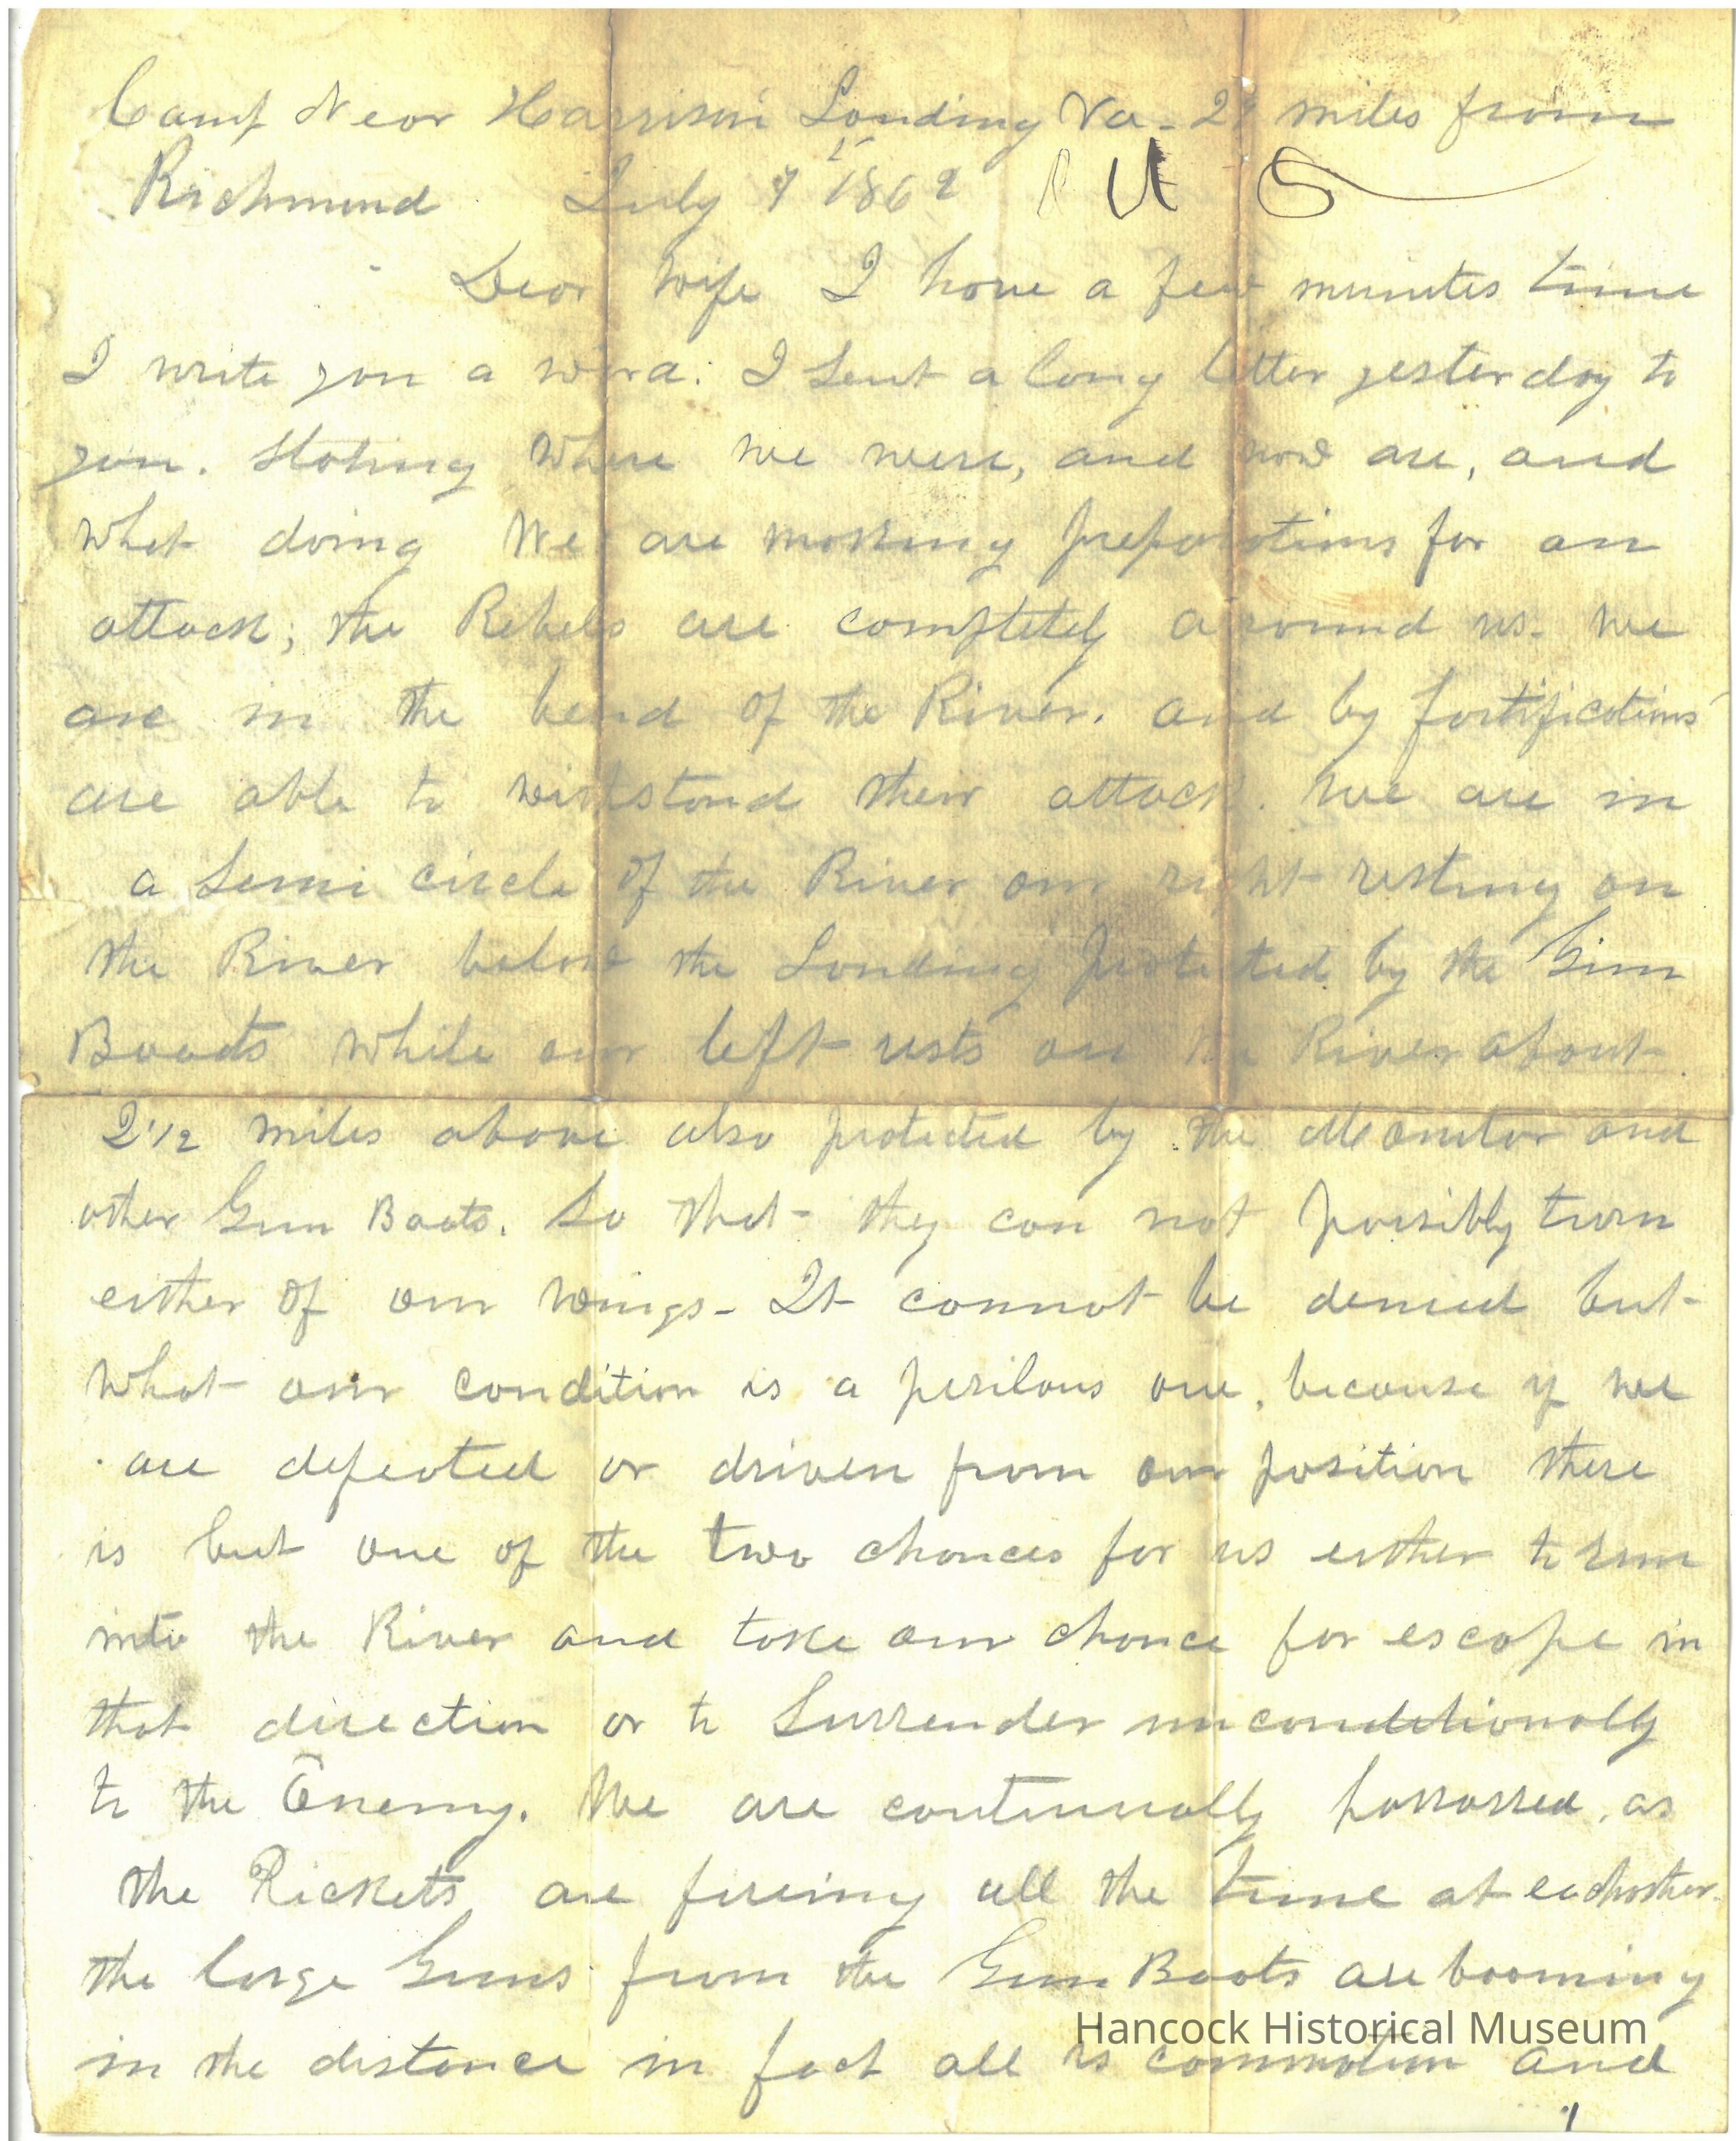 Camp Near Harrison Landing Va - miles from
Richmond July 7 1862
Dear Wife I have a few minutes time
I write you a word. I Sent a long letter yesterday to
you. Stating Where we were, and now are, and
What doing We are making preparations for an
attack; the Rebels are completely around us. we
are in the bend of the River. and by fortifications
are able to withstand their attack. We are in
a Semi circle of the River our right resting on
the River below the Landing protected by the Gun
Boats While our left rests on the River about
2 1/2 miles above also protected by the Monitor and
other Gun Boats. So that they can not possibly turn
either of our wings - It cannot be denied but
What our condition is a perilous one, because if we
are defeated or driven from our position there
is but one of the two chances for us either to run
into the River and take our chance for escape in
that direction or to Surrender unconditionally
to the Enemy. We are continually harrassed, as
the Pickets are fireing all the time at eachother
the large Guns from the Gun Boats are booming
in the distance in fact all is commotion and
Hancock Historical Museum
1